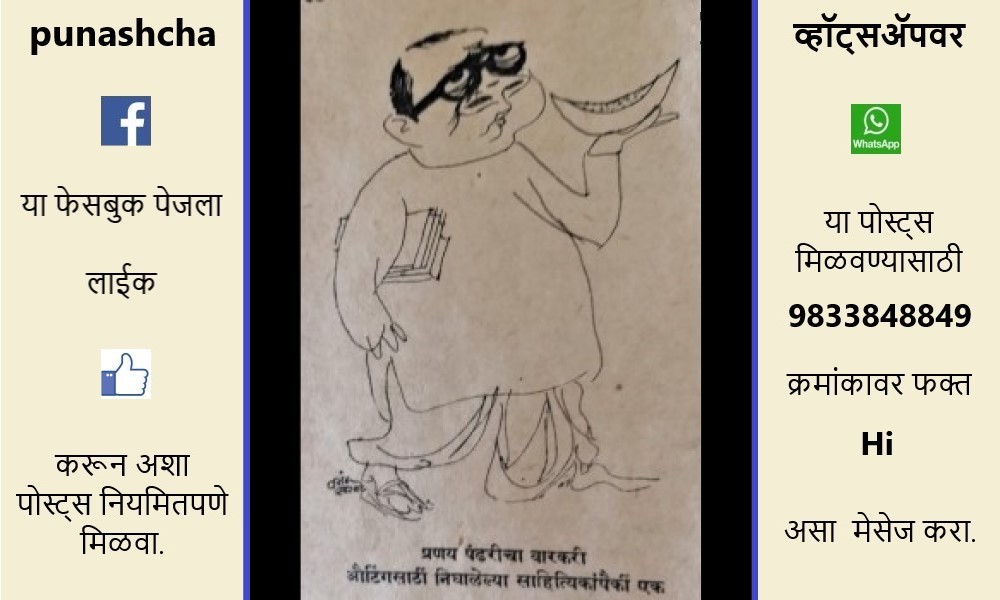 punashcha
या फेसबुक पेजला
लाईक
करून अशा
पोस्ट्स नियमितपणे
मिळवा.
प्रणय पंढरीचा वारकरी
औटिंगसाठीं निघालेल्या साहित्यिकांपैकीं एक
व्हॉट्सॲपवर
WhatsApp
या पोस्ट्स
मिळवण्यासाठी
9833848849
क्रमांकावर फक्त
Hi
असा मेसेज करा.